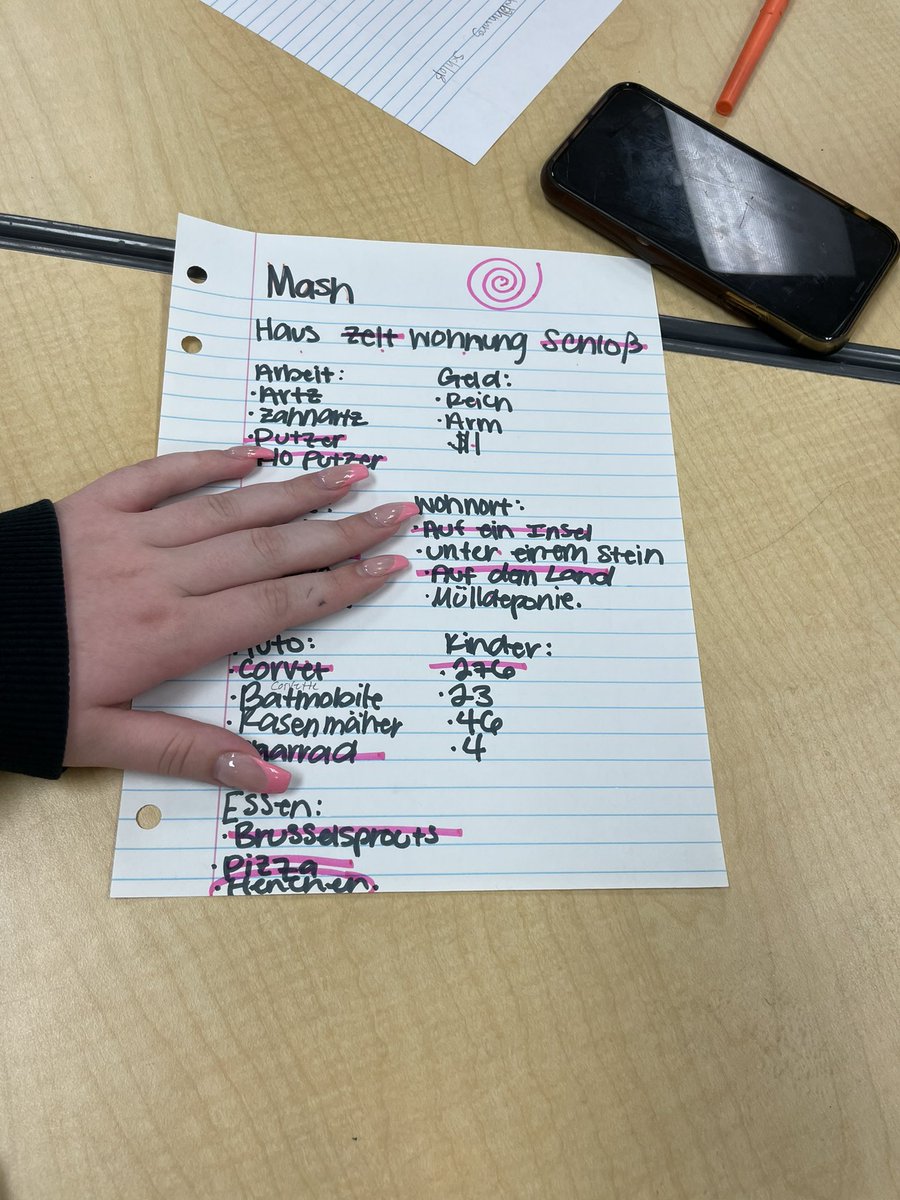 Mash
Haus Zelt Wohnung Schloß
Arbeit:
·Artz
·Zahnartz
·Putzer
Klo Putzer
Geld:
·Reich
·Arm
·$1
Wohnort:
·Auf ein Insel
·unter einem Stein
·Auf dem Land
·Mülldeponie.
Auto:
·Corvet
Corvette
·Batmobile
·Rasenmäher
Kinder:
·276
·23
·46
·4
Essen:
·Brusselsprouts
·Pizza
·Henchen.